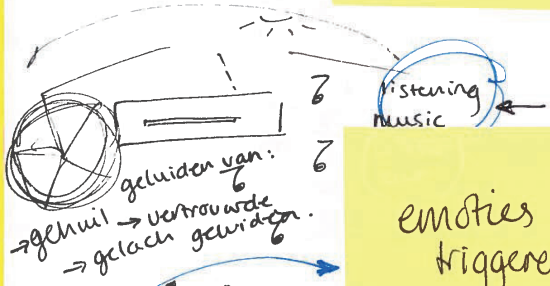 listening
music
geluiden van:
→ gehuil → vertrouwde
→ gelach geluiden.
emoties
triggere